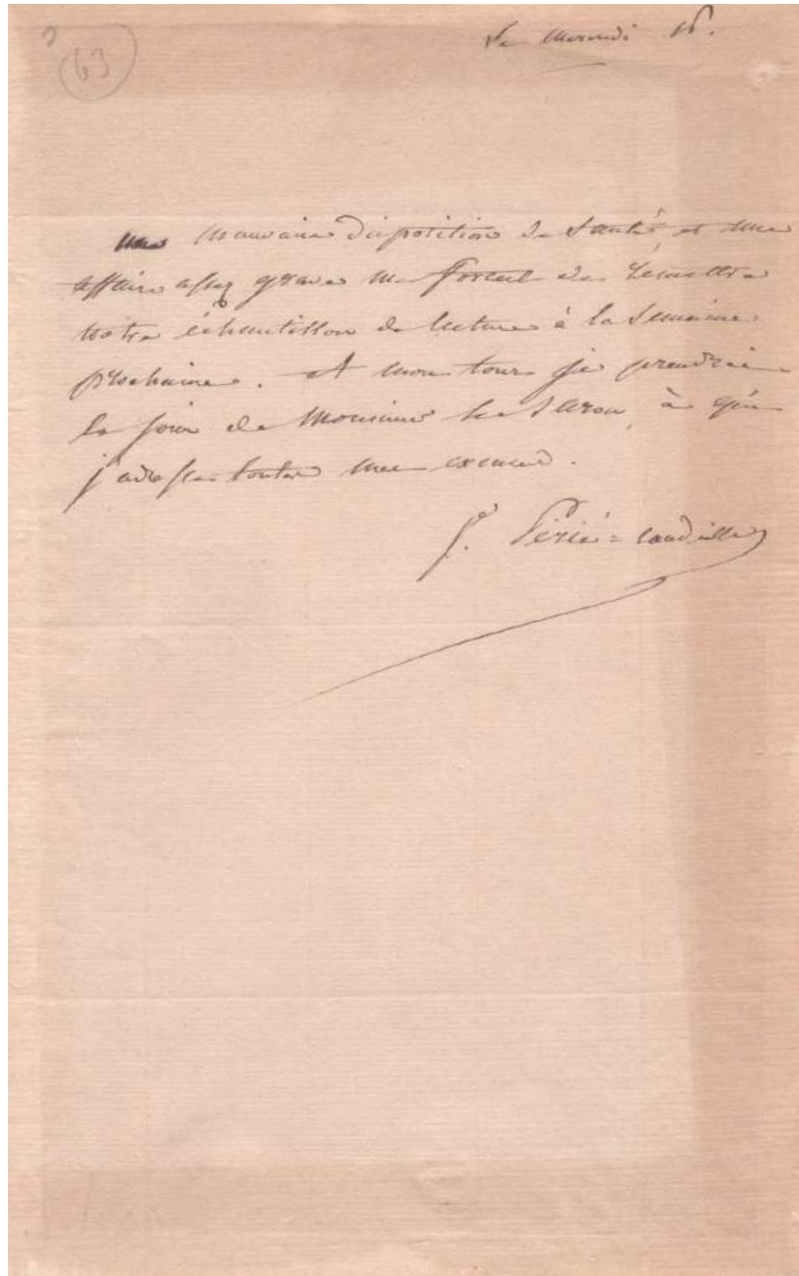 63
Le mercredi 16.
une mauvaise disposition de Santé et une
affaire assez grave me forcent de remettre
notre échantillon de lecture à la Semaine
prochaine. A mon tour je prendrai
le jour de Monsieur le Baron, à qui
j'adresse toutes mes excuses.
J. Périé = Candeille